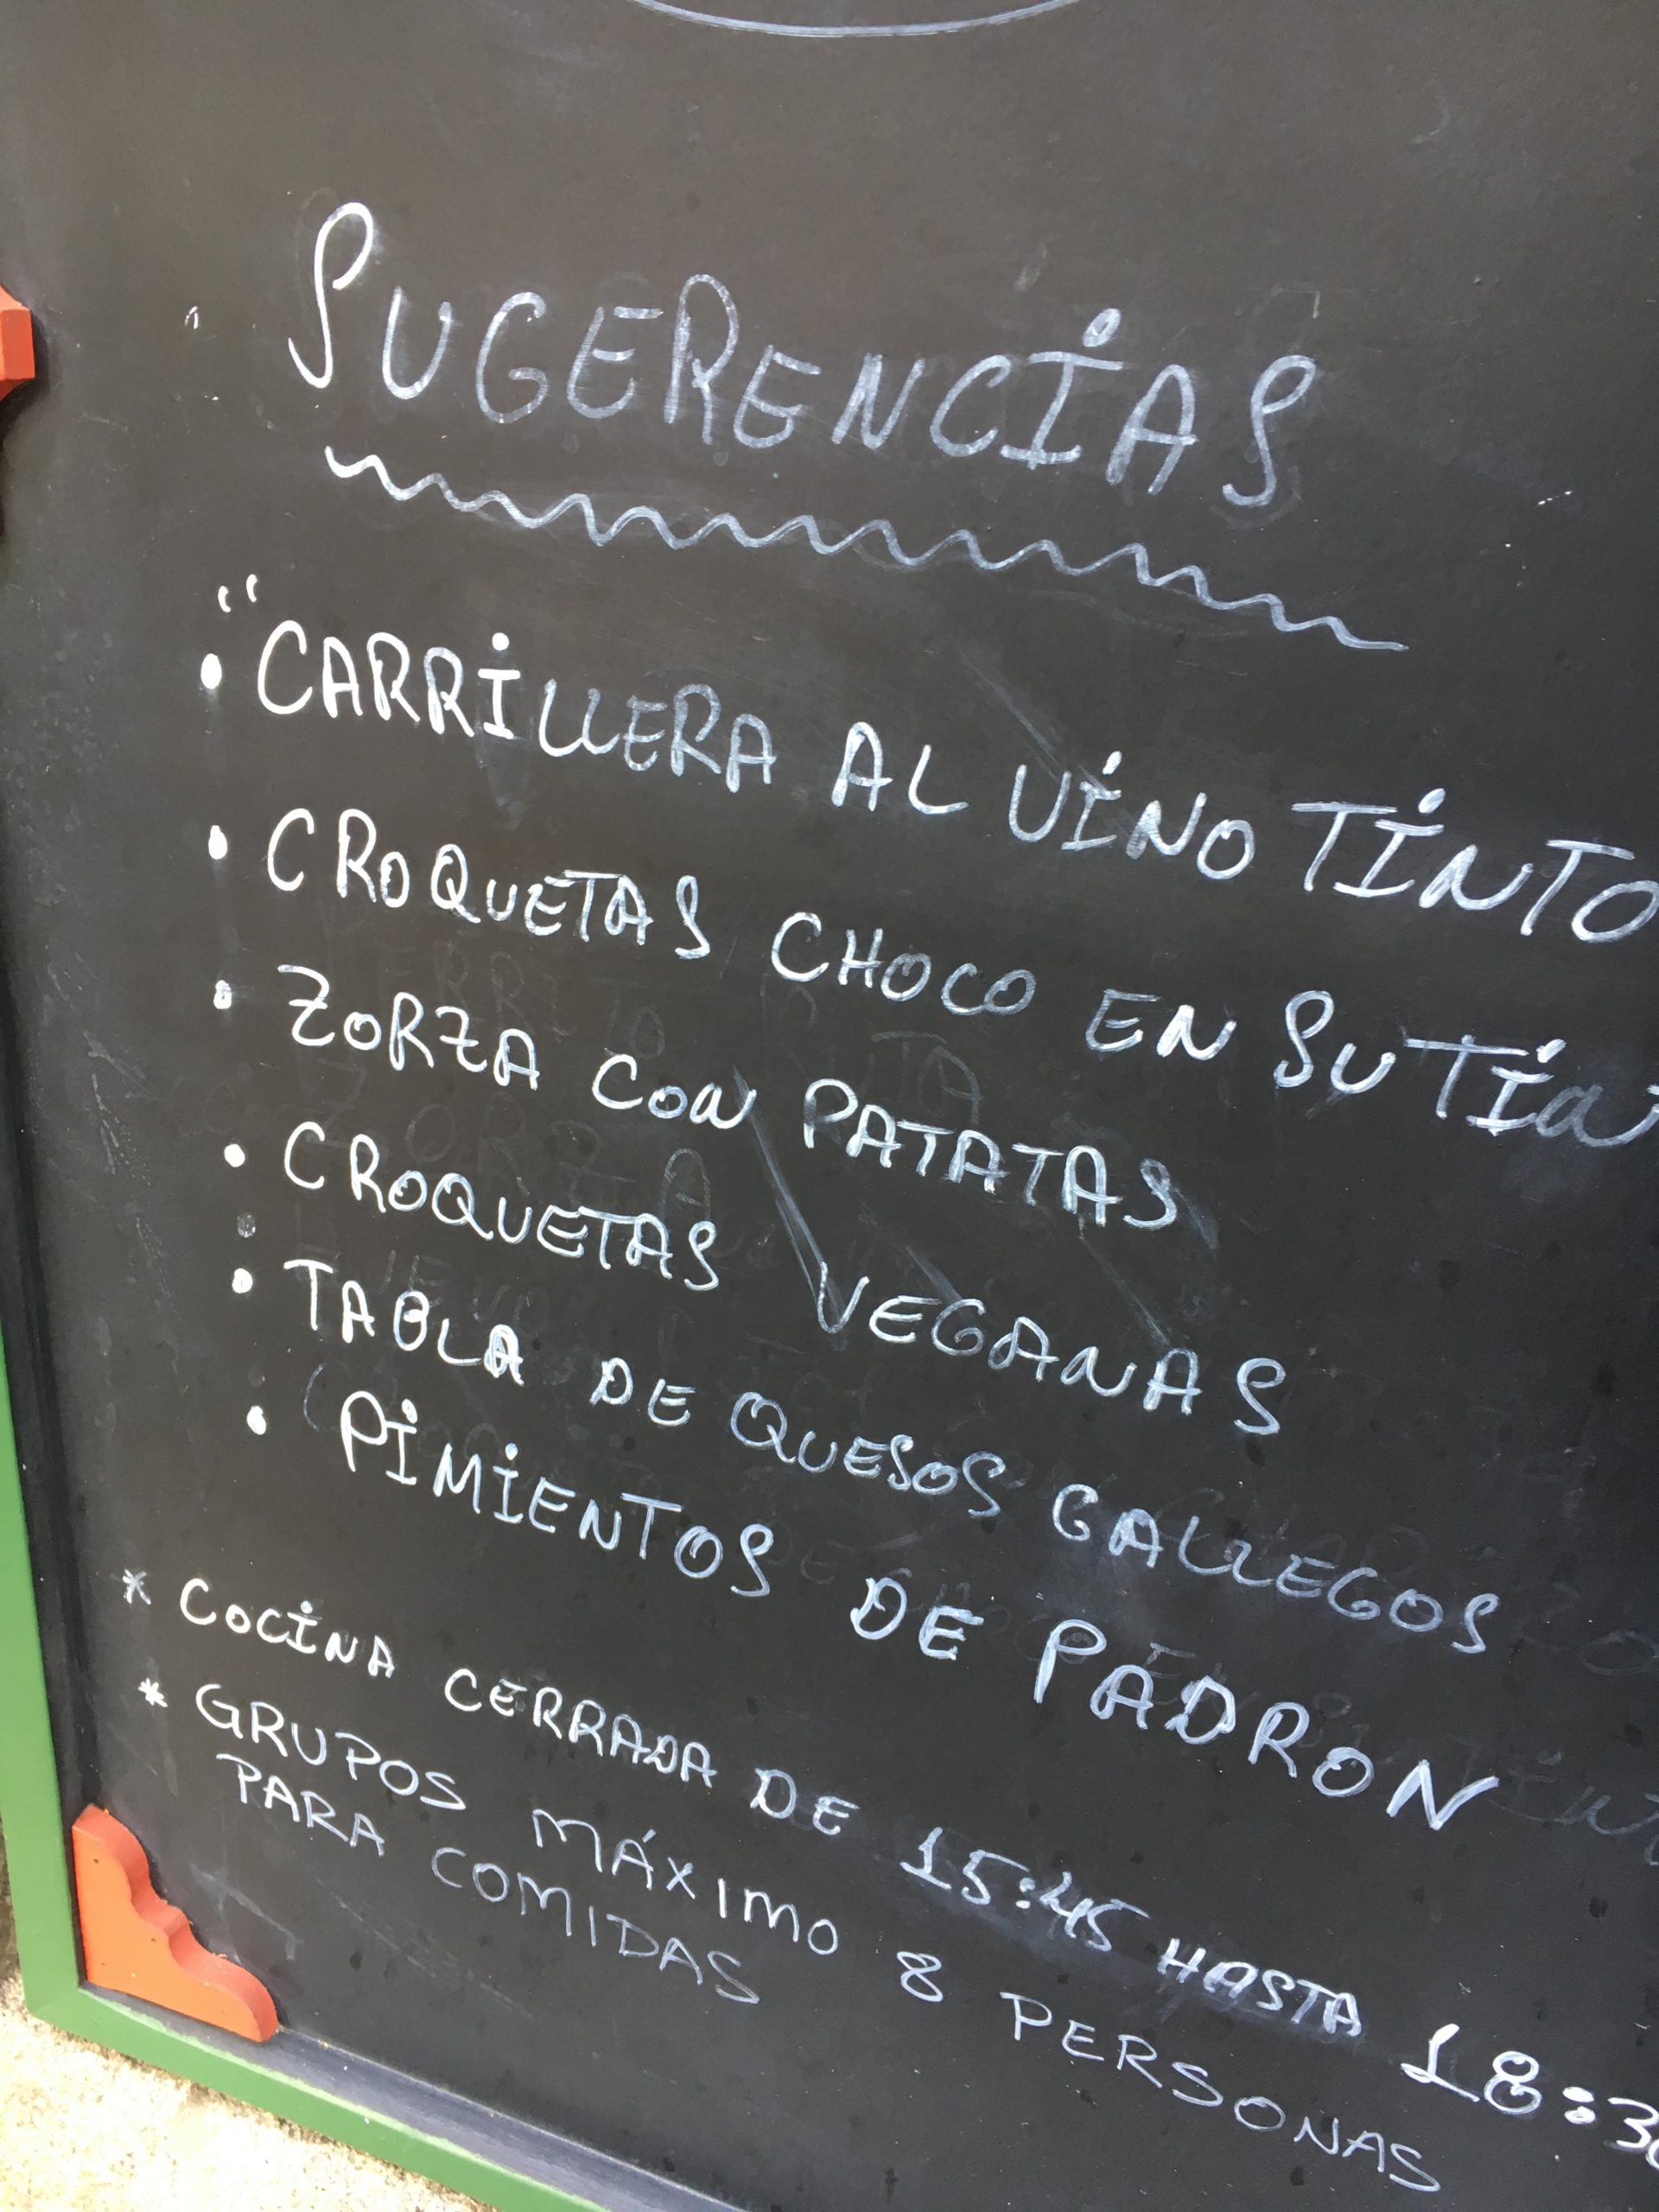 SUGERENCIAS
"
• CARRILLERA AL VINO TINTO
• CROQUETAS CHOCO EN SU TIN
• ZORZA CON PATATAS
• CROQUETAS VEGANAS
• TABLA DE QUESOS GALLEGOS
• PIMIENTOS DE PADRON
* COCINA CERRADA DE 15:45 HASTA 18:30
* GRUPOS MÁXIMO 8 PERSONAS
PARA COMIDAS